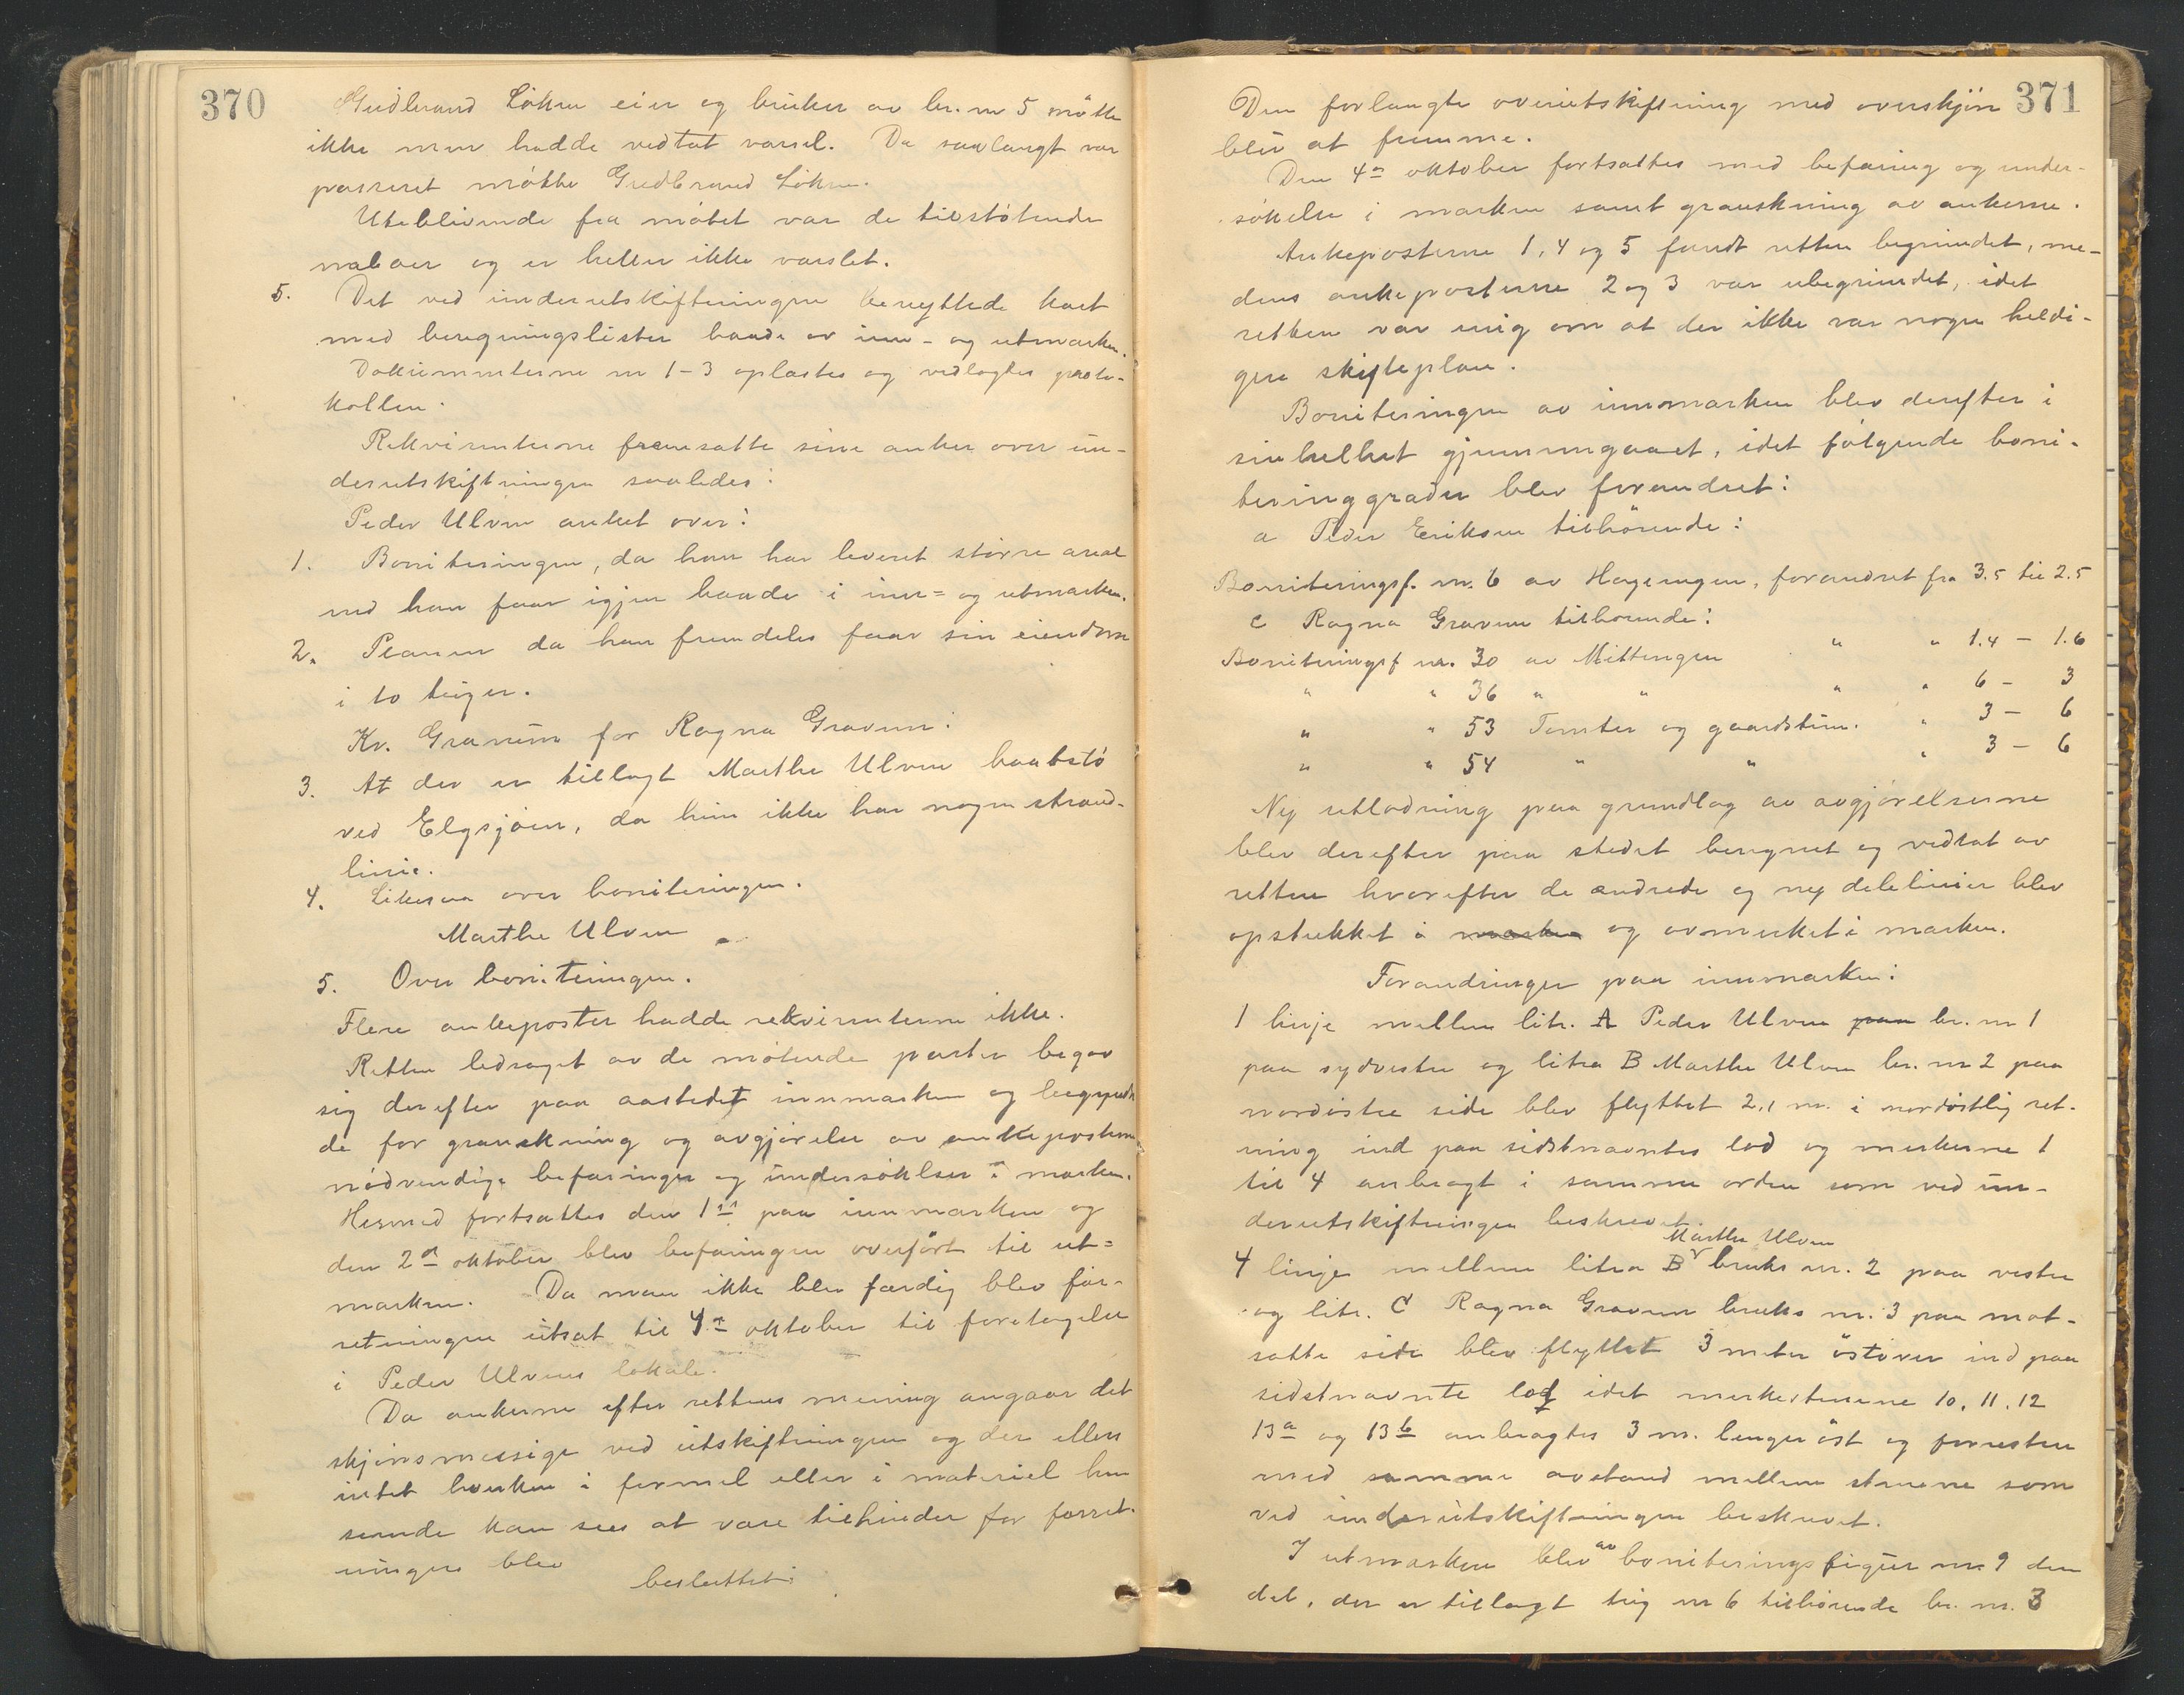 370
Gudbrand Löken eier og bruker av br. nr 5 mötte
ikke men hadde vedtat varsel. Da saalangt var
passeret mötte Gudbrand Löken.
Uteblivende fra mötet var de tilstötende
naboer og er heller ikke varslet.
5. Det ved underutskiftningen benyttede kart
med beregningslister baade av inn- og utmarken.
Dokumenterne nr 1-3 oplæstes og vedlagtes proto-
kollen.
Rekvirenterne fremsatte sine anker over un-
derutskiftningen saaledes:
Peder Ulven anket over:
1. Boniteringen, da han har leveret större areal
end han faar igjen baade i inn= og utmarken.
2. Planen da han fremdeles faar sin eiendom
i to teiger.
Kr. Granum for Ragna Gravem:
3. At der er tillagt Marthe Ulven baatstö
ved Elgsjöen, da hun ikke har nogen strand-
linie.
4. Likesaa over boniteringen.
Marthe Ulven
5. Over boniteringen.
Flere ankeposter hadde rekvirenterne ikke.
Retten ledsaget av de mötende parter begav
sig derefter paa aastedet innmarken og begyndte
de for granskning og avgjörelse av ankeposterne
nödvendige befaringer og undersökelser i marken.
Hermed fortsattes den 1ste paa innmarken og
den 2den oktober blev befaringen overfört til ut=
marken. Da man ikke blev færdig blev for-
retningen utsat til 4de oktober til foretagelse
i Peder Ulvens lokale.
Da ankerne efter rettens mening angaar det
skjönsmessige ved utskiftningen og der ellers
intet hverken i formel eller i materiel hen
seende kan sees at være tilhinder for forret-
ningen blev
besluttet:
Den forlangte overutskiftning med overskjön 371
blir at fremme.
Den 4de oktober fortsattes med befaring og under-
sökelse i marken samt granskning av ankerne.
Ankeposterne 1, 4 og 5 fandt retten begrundet, me-
dens ankeposterne 2 og 3 var ubegrundet, idet
retten var enig om at der ikke var nogen heldi-
gere skifteplan.
Boniteringen av innmarken blev derefter i
sin helhet gjennemgaaet, idet fölgende boni-
teringgrader blev forandret:
a Peder Eriksen tilhörende:
Boniteringsf. nr. 6 av Hageengen, forandret fra 3.5 til 2.5
C Ragna Gravem tilhörende:
Boniteringsf nr. 30 av Mittengen " " 1.4 - 1.6
" " 36 " " " " 6 - 3
" " 53 Tomter og gaardstun. " 3 - 6
" " 54 " " " 3 - 6
Ny utlodning paa grundlag av avgjörelserne
blev derefter paa stedet beregnet og vedtat av
retten hvorefter de ændrede og ny delelinier blev
opstukket i marken og avmerket i marken.
Forandringer paa innmarken:
1 linje mellem litr. A Peder Ulven paa br. nr 1
paa sydvestre og litra B Marthe Ulven br. nr 2 paa
nordöstre side blev flyttet 2,1 m. i nordöstlig ret-
ning ind paa sidstnævntes lod og merkerne 1
til 4 anbragt i samme orden som ved un-
derutskiftningen beskrevet.
Marthe Ulven
4 linje mellem litra B bruks nr. 2 paa vestre
og litr. C Ragna Gravem bruks nr. 3 paa mot-
satte side blev flyttet 3 meter östover ind paa
sidstnævnte lod idet merkestenene 10, 11, 12
13a og 13b anbragtes 3 m. lenger öst og forresten
med samme avstand mellem stenene som
ved underutskiftningen beskrevet.
I utmarken blev av boniteringsfigur nr. 9 den
del, der er tillagt teig nr 6 tilhörende br. nr. 3